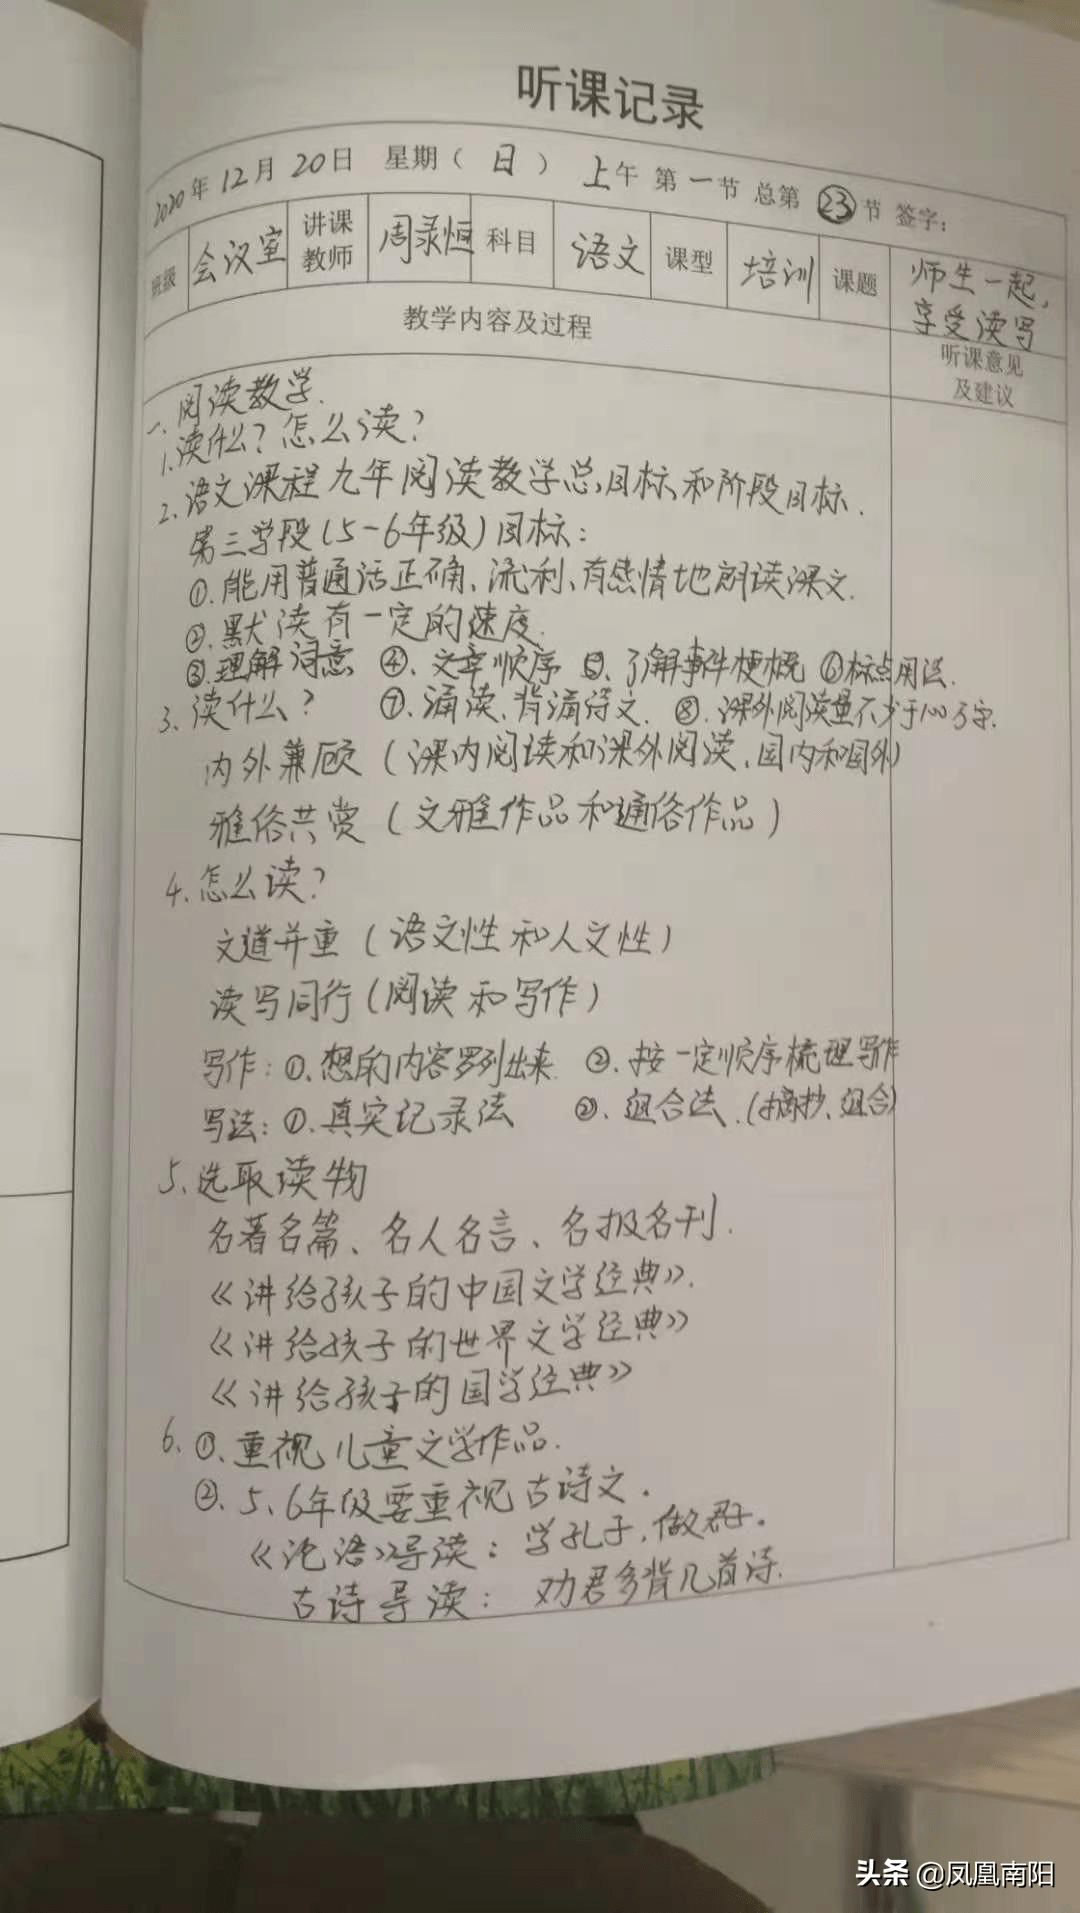 听课记录
2020年 12月 20日 星期(日) 上午 第一节 总第23节 签字:
班级 会议室 讲课教师 周录恒 科目 语文 课型 培训 课题 师生一起,享受读写
教学内容及过程 听课意见及建议
一、阅读教学.
1.读什么?怎么读?
2.语文课程九年阅读教学总目标和阶段目标.
第三学段(5-6年级)目标:
①.能用普通话正确、流利、有感情地朗读课文.
②.默读有一定的速度.
③.理解词意 ④.文章顺序 ⑤.了解事件梗概 ⑥标点用法.
3.读什么? ⑦.诵读、背诵诗文. ⑧.课外阅读量不少于100万字.
内外兼顾(课内阅读和课外阅读、国内和国外)
雅俗共赏(文雅作品和通俗作品)
4.怎么读?
文道并重(语文性和人文性)
读写同行(阅读和写作)
写作:①.想的内容罗列出来 ②.按一定顺序梳理写作
写法:①.真实记录法 ②.组合法.(摘抄、组合)
5.选取读物
名著名篇、名人名言、名报名刊.
《讲给孩子的中国文学经典》.
《讲给孩子的世界文学经典》
《讲给孩子的国学经典》
6.①.重视儿童文学作品.
②.5、6年级要重视古诗文.
《论语》导读:学孔子,做君子.
古诗导读:劝君多背几首诗.
头条 @凤凰南阳